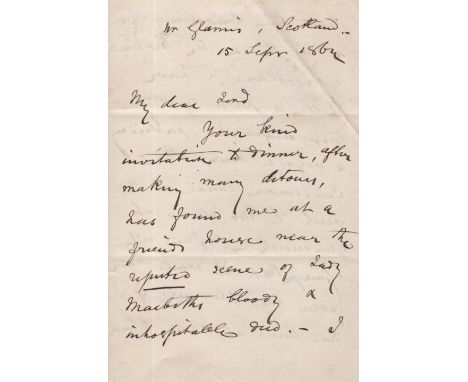 nr Glamis, Scotland. -
15 Sepr 1864
My dear Lord
Your kind
invitation to dinner, after
making many detours,
has found me at a
friends house near the
reputed scene of Lady
Macbeths bloody &
inhospitable deed. - I